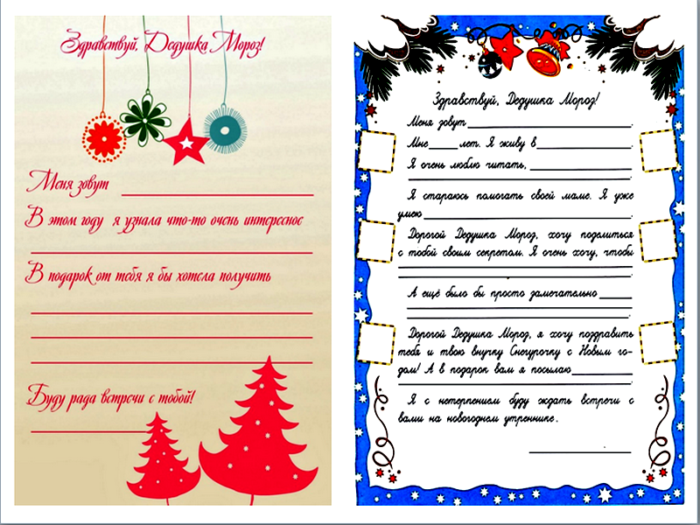 Здравствуй, Дедушка Мороз!
Меня зовут
В этом году я узнала что-то очень интересное
В подарок от тебя я бы хотела получить
Буду рада встречи с тобой!
Здравствуй, Дедушка Мороз!
Меня зовут.
Мне лет. Я живу в.
Я очень люблю читать,
Я стараюсь помогать своей маме. Я уже
умею.
Дорогой Дедушка Мороз, хочу поделиться
с тобой своим секретом. Я очень хочу, чтобы
А ещё было бы просто замечательно
Дорогой Дедушка Мороз, я хочу поздравить
тебя и твою внучку Снегурочку с Новым го-
дом! А в подарок вам я посылаю
Я с нетерпением буду ждать встречи с
вами на новогоднем утреннике.